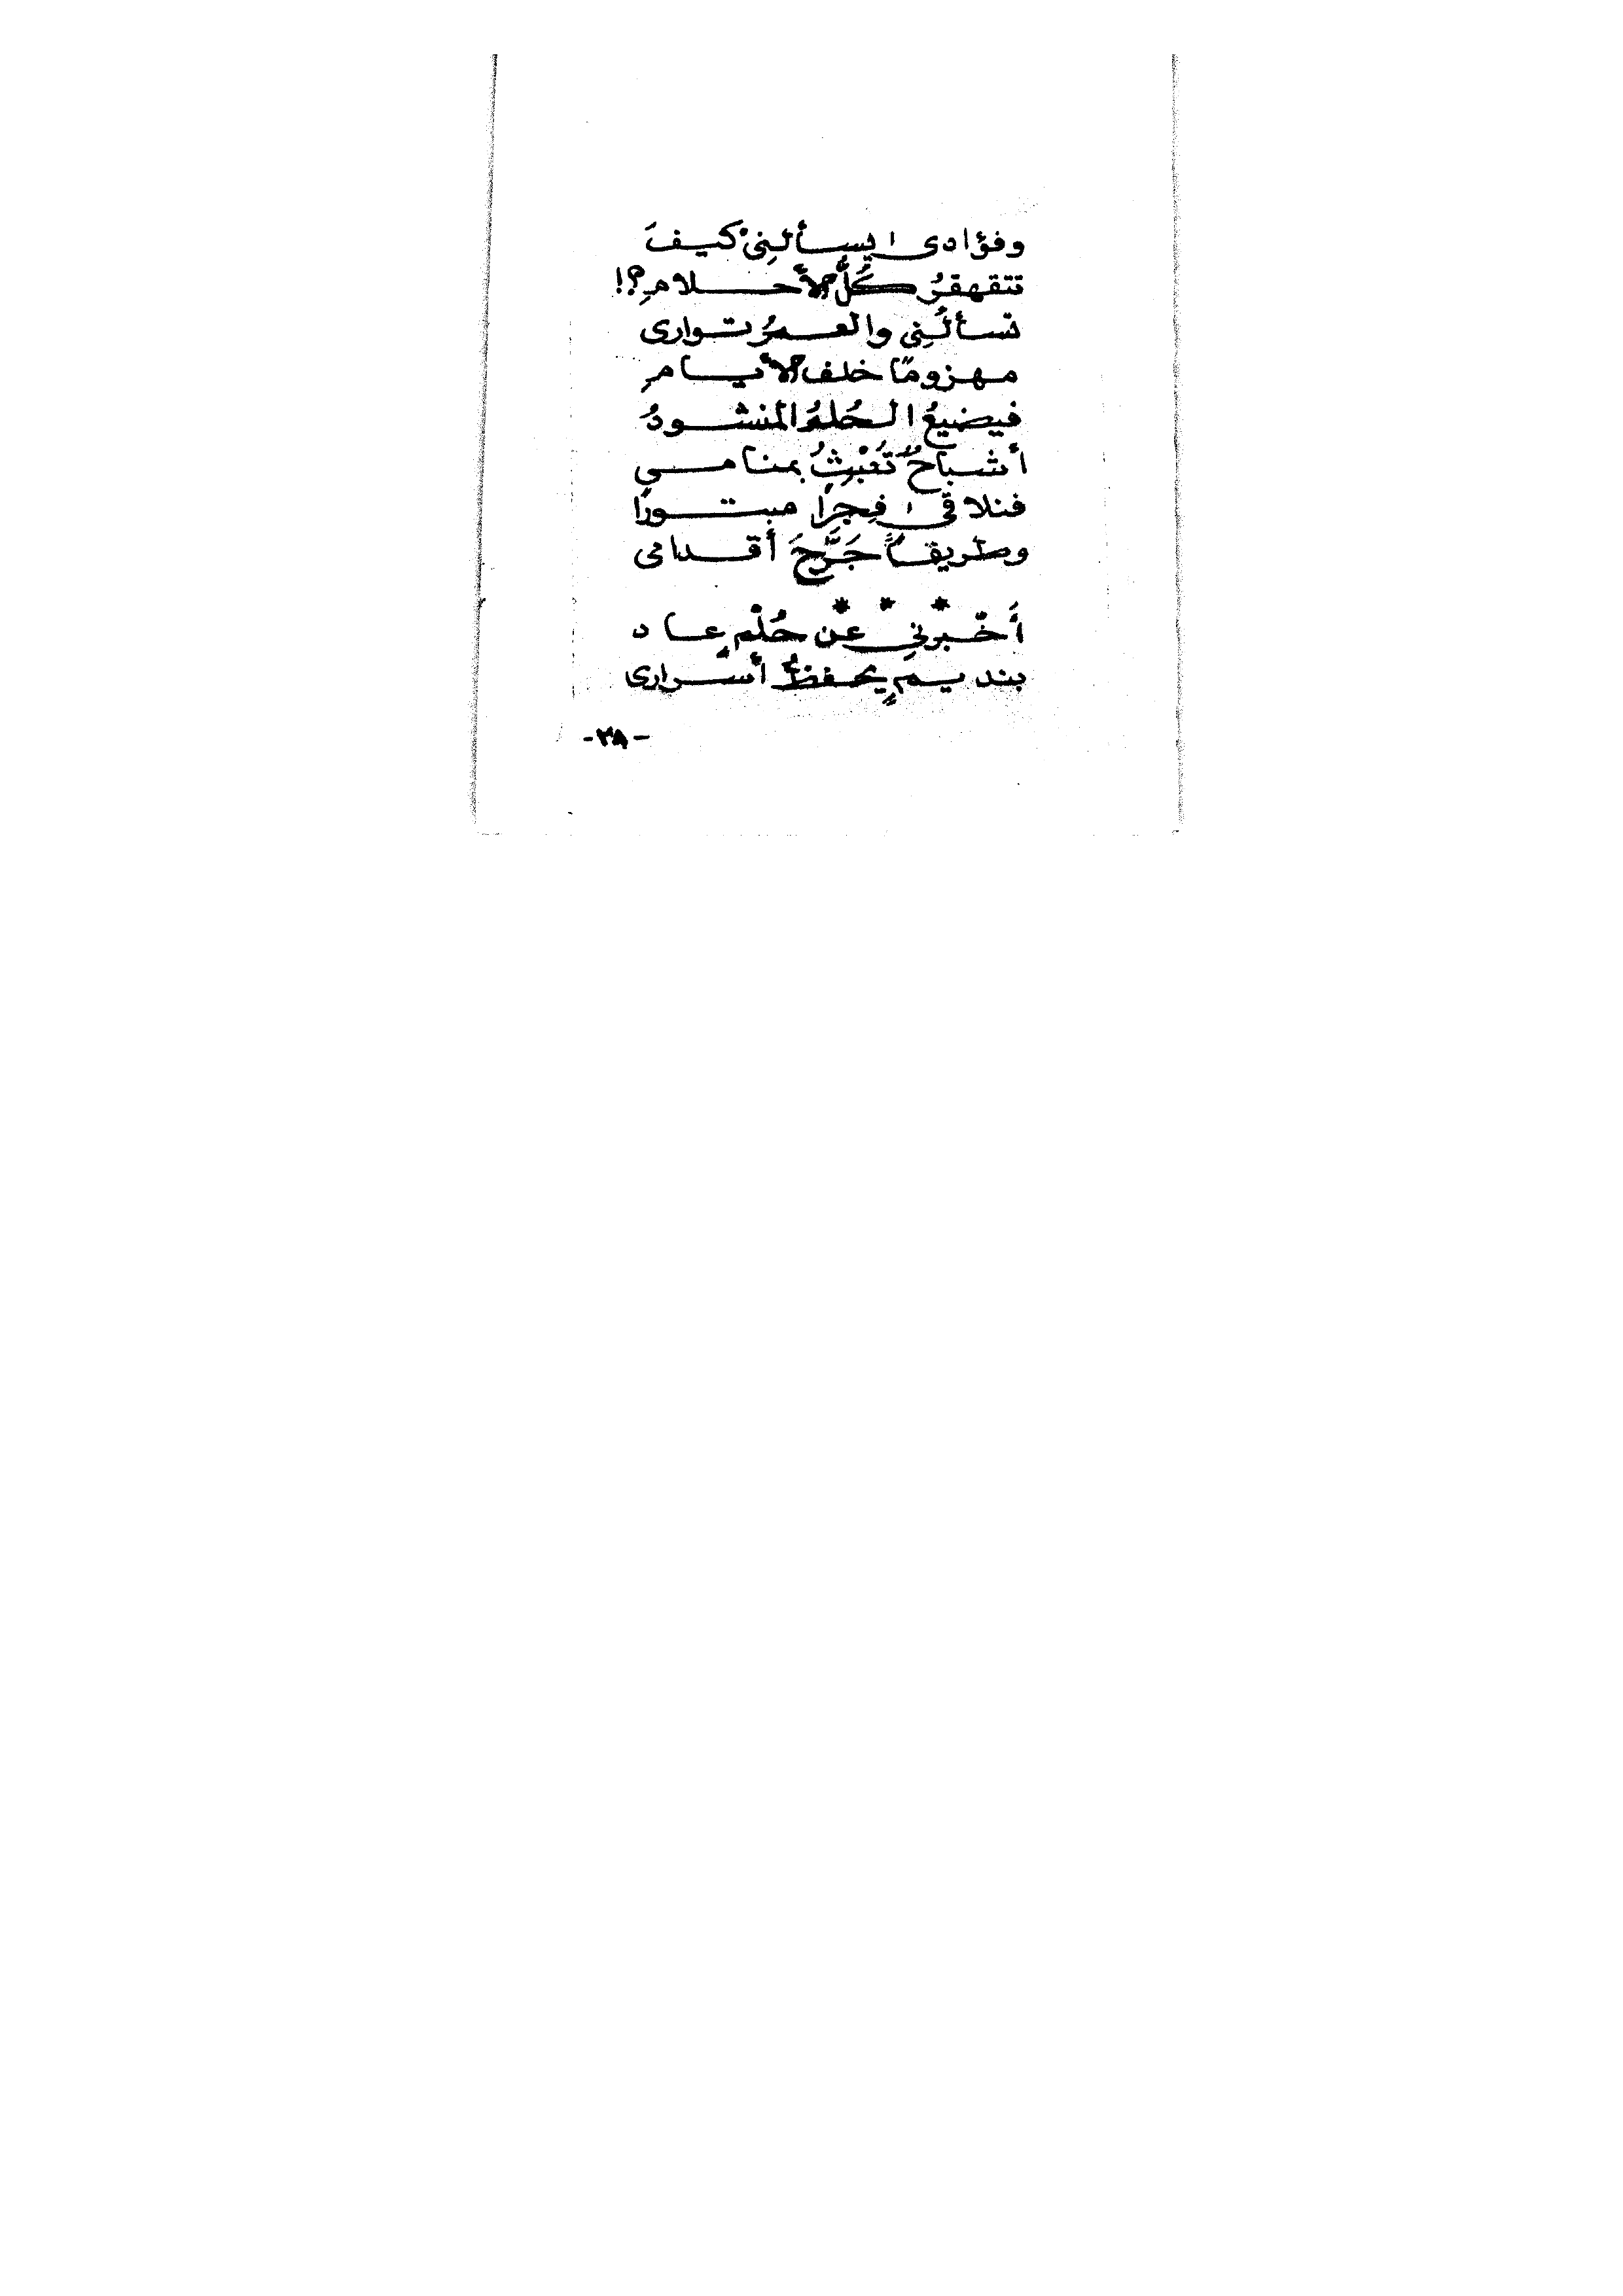 وفؤادى يسألنِىْ كيفَ
تتقهقرُ كُلُّ الأحلامِ؟!
تسألُنِى والعمرُ توارى
مهزومًا خلف الأيامِ
فيضيعُ الحُلمُ المنشودُ
أشباحٌ تُعْبثُ بمنامى
فنلاقى فجرًا مبتورًا
وطريقاً جَرَّحَ أقدامى
* * *
أَخْبرنِى عن حُلْمٍ عاد
بنديمٍ يحفظُ أسرارى
-٣٨-